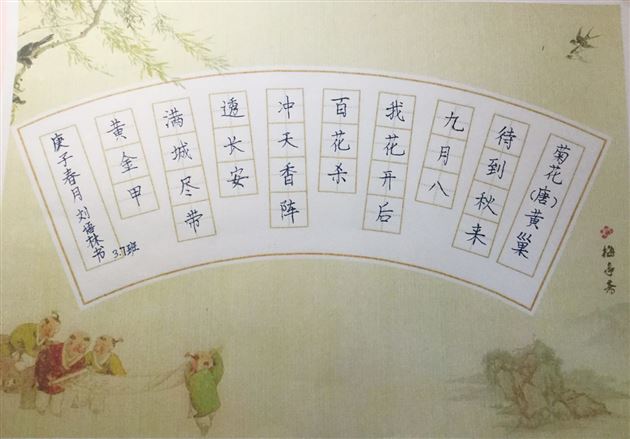 菊花(唐)黄巢
待到秋来
九月八
我花开后
百花杀
冲天香阵
透长安
满城尽带
黄金甲
庚子春月刘语林书
3.7班